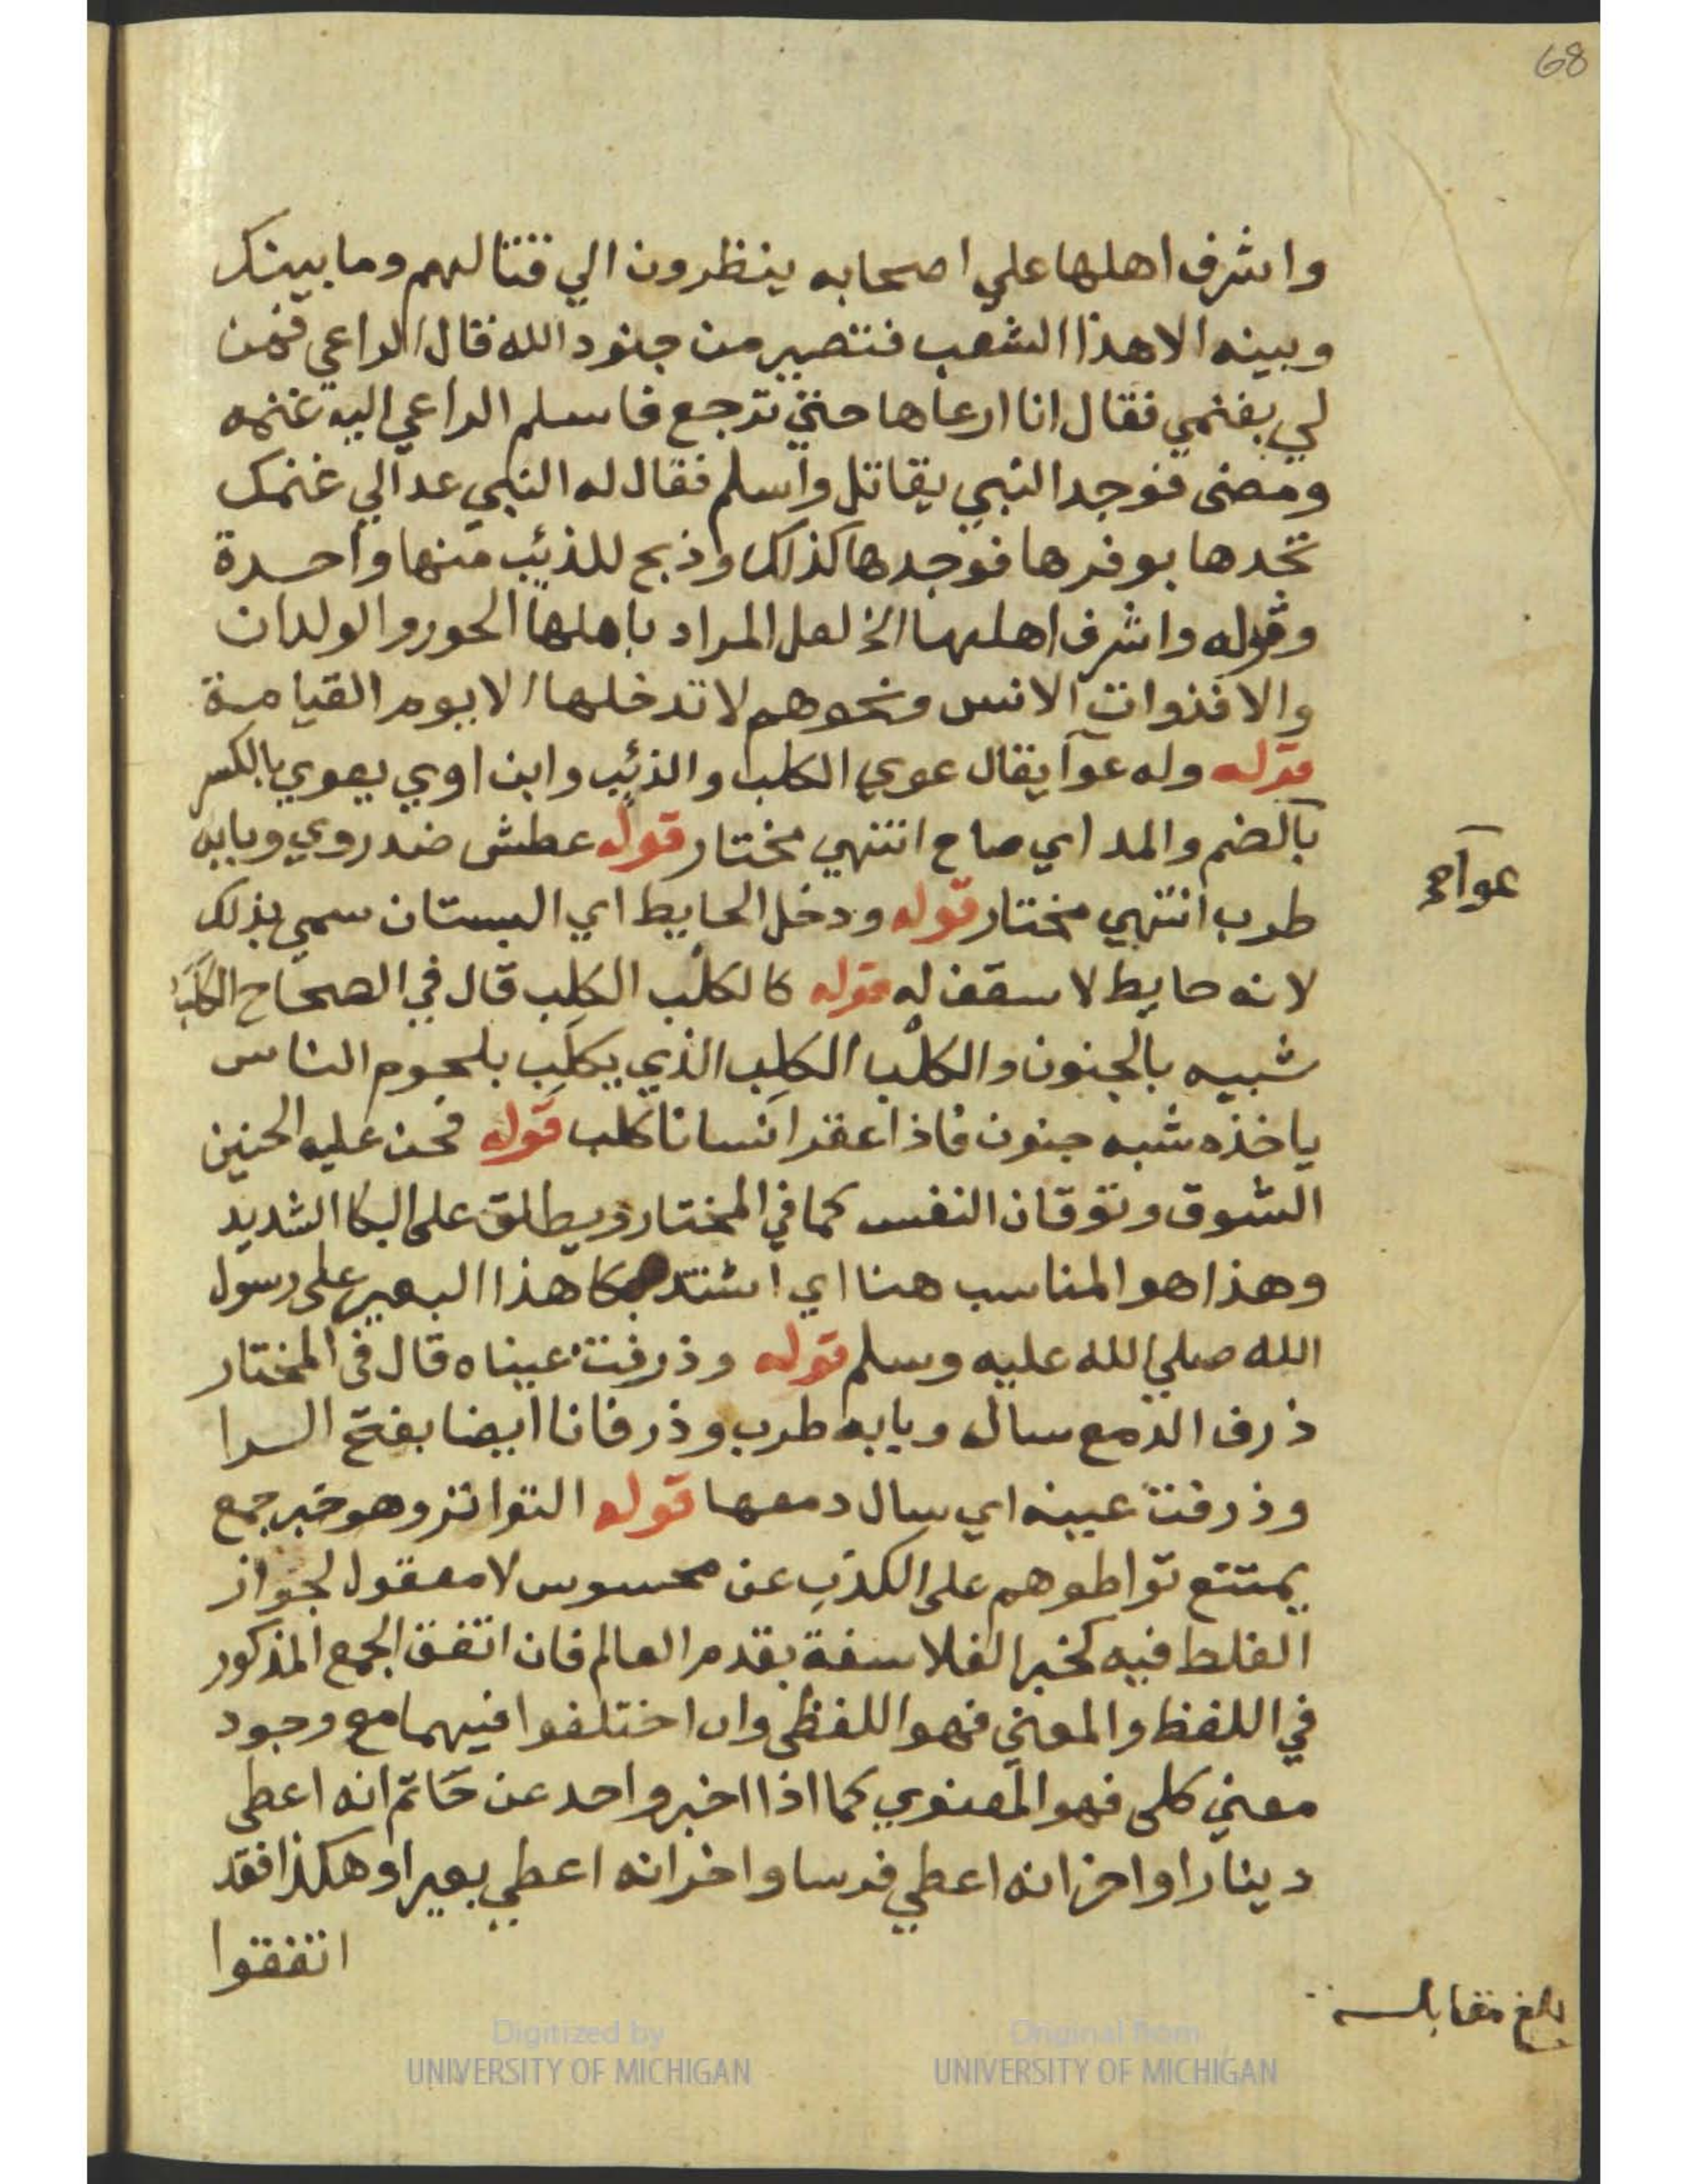 68
واشرف اهلها علي اصحابه ينظرون الي قتالهم وما بينك
وبينه الا هذا الشعب فتصير من جنود الله قال الراعي فمن
لي بغنمي فقال انا ارعاها حتي ترجع فاسلم الراعي اليه غنمه
ومضى فوجد النبي يقاتل واسلم فقال له النبي عد الي غنمك
تجدها بوفرها فوجدها كذلك وذبح للذئب منها واحدة
وقوله واشرف اهلها الخ لعل المراد باهلها الحور والولدان
والا فذوات الانس ونحوهم لا تدخلها الا يوم القيامة
قوله وله عوآ يقال عوي الكلب والذئب وابن اوي يعوي بالكسر
بالضم والمد اي صاح انتهي مختار قوله عطش ضد روي وبابه
عوآ صح
طرب انتهي مختار قوله ودخل الحايط اي البستان سمي بذلك
لانه حايط لا سقف له قوله كالكلْب الكلِب قال في الصحاح الكلَب
شبيه بالجنون والكلْب الكلِب الذي يكلَب بلحوم الناس
ياخذه شبه جنون فاذا عقر انسانا كلب قوله فحن عليه الحنين
الشوق وتوقان النفس كما في المختار ويطلق على البكا الشديد
وهذا هو المناسب هنا اي اشتد بكا هذا البعير على رسول
الله صلي الله عليه وسلم قوله وذرفت عيناه قال في المختار
ذرف الدمع سال وبابه طرب وذرفانا ايضا بفتح الرا
وذرفت عينه اي سال دمعها قوله التواتر وهو خبر جمع
يمتنع تواطوهم على الكذب عن محسوس لا معقول لجواز
الغلط فيه كخبر الفلاسفة بقدم العالم فان اتفق الجمع المذكور
في اللفظ والمعني فهو اللفظي وان اختلفوا فيهما مع وجود
معني كلى فهو المعنوي كما اذا اخبر واحد عن حاتم انه اعطى
دينارا واخر انه اعطي فرسا واخر انه اعطي بعيرا وهكذا فقد
اتفقوا
بلغ مقابله
Digitized by
UNIVERSITY OF MICHIGAN
Original from
UNIVERSITY OF MICHIGAN